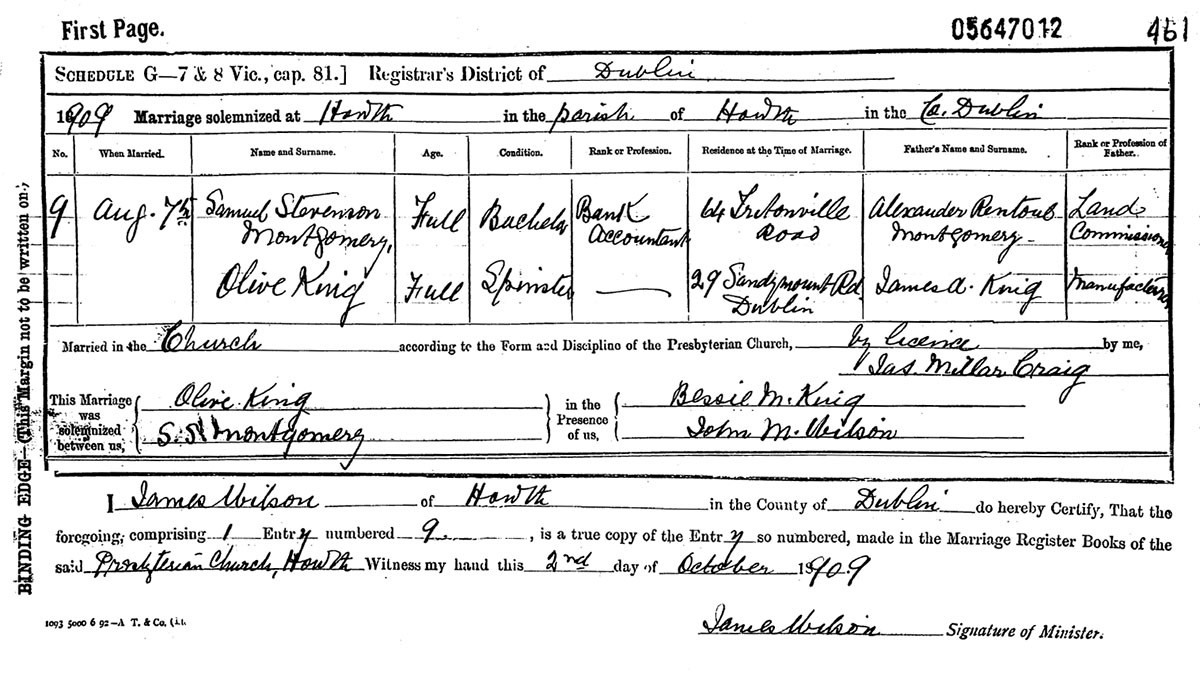 First Page.
05647012
461
SCHEDULE G—7 & 8 Vic., cap. 81.] Registrar's District of Dublin
1909 Marriage solemnized at Howth in the parish of Howth in the Co. Dublin
No. When Married. Name and Surname. Age. Condition. Rank or Profession. Residence at the Time of Marriage. Father's Name and Surname. Rank or Profession of Father.
9 Aug. 7th Samuel Stevenson Montgomery, Full Bachelor Bank Accountant 64 Tritonville Road Alexander Rentoul Montgomery Land Commissioner
Olive King Full Spinster — 29 Sandymount Rd. Dublin James A. King Manufacturer
Married in the Church according to the Form and Discipline of the Presbyterian Church, by licence by me,
Jas. Millar Craig
This Marriage was solemnized between us,
Olive King
S. S. Montgomery
in the Presence of us,
Bessie M. King
John M. Wilson
I James Wilson of Howth in the County of Dublin do hereby Certify, That the
foregoing, comprising 1 Entry numbered 9, is a true copy of the Entry so numbered, made in the Marriage Register Books of the
said Presbyterian Church, Howth Witness my hand this 2nd day of October 1909
James Wilson Signature of Minister.
BINDING EDGE—(This Margin not to be written on.)
1093 5000 6 92—A T. & Co.